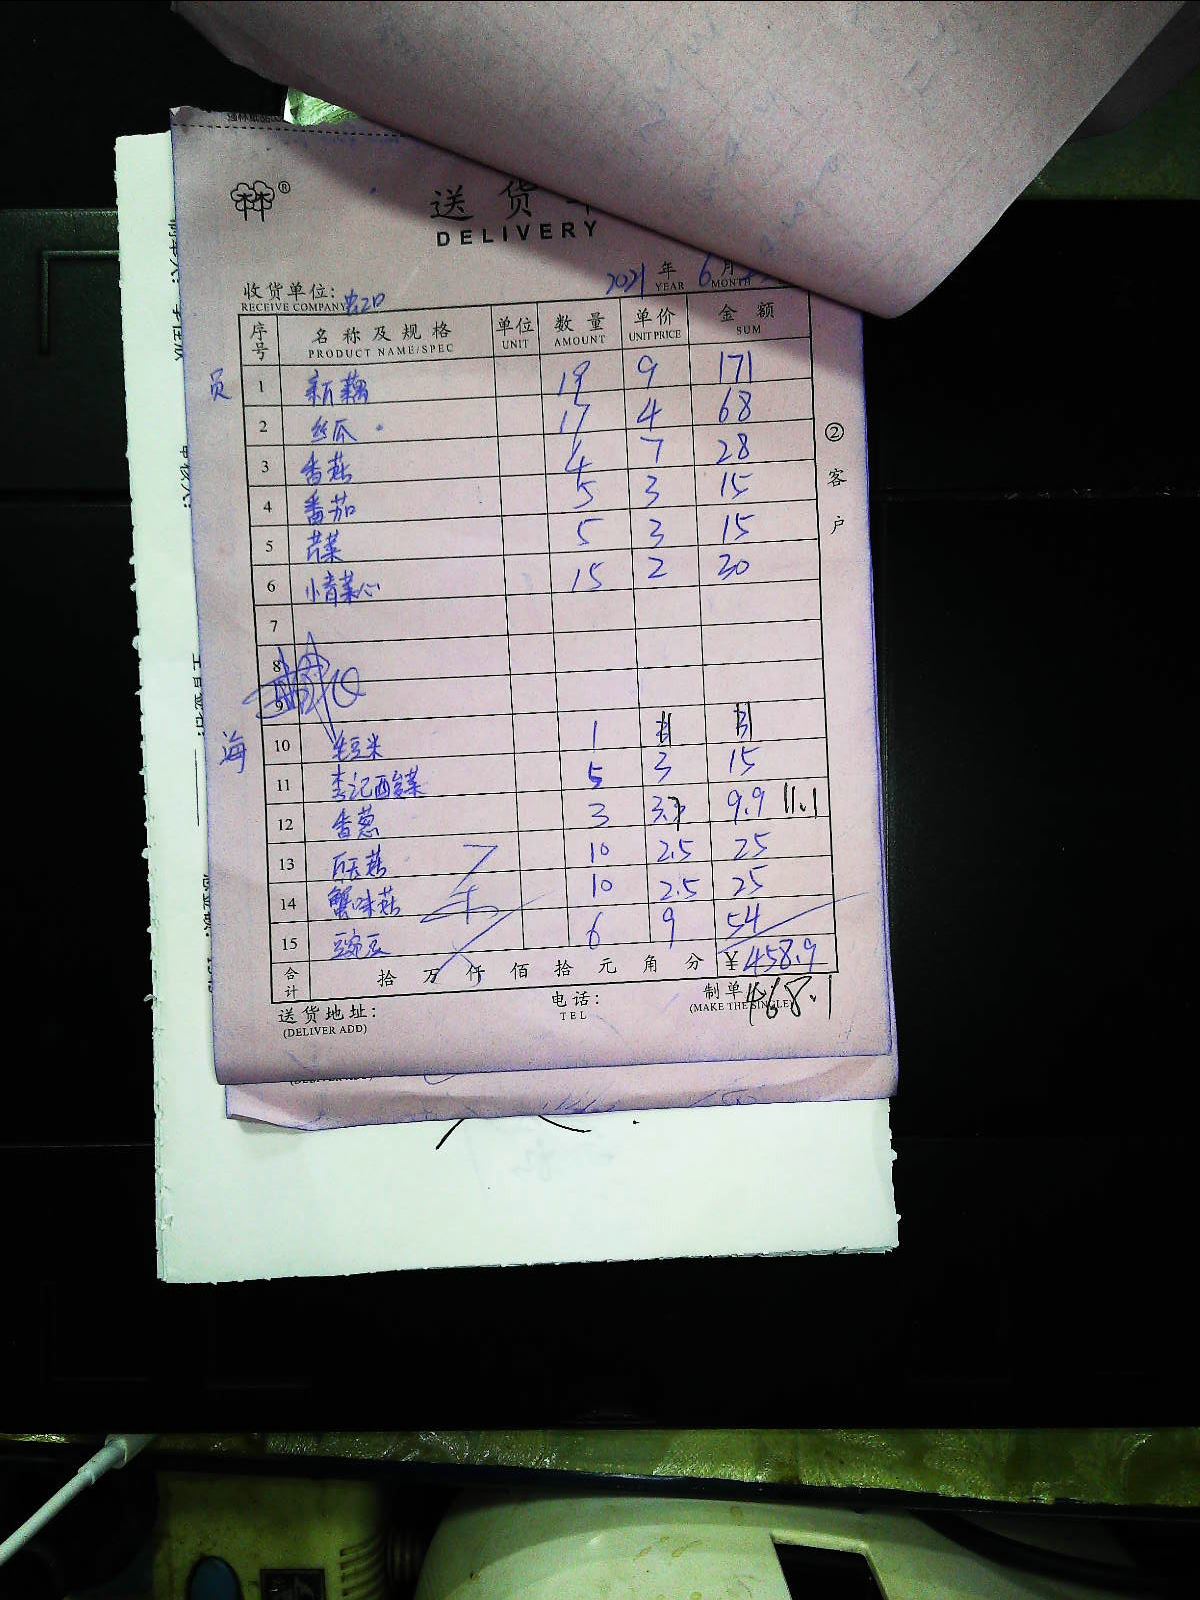 送 货
DELIVERY
2021 年 6 月
YEAR MONTH
收货单位: 虹口
RECEIVE COMPANY
序号 名称及规格 单位 数量 单价 金额
PRODUCT NAME/SPEC UNIT AMOUNT UNIT PRICE SUM
员
1 新藕 19 9 171
2 丝瓜 17 4 68
3 香菇 4 7 28
4 番茄 5 3 15
5 芹菜 5 3 15
6 小青菜心 15 2 30
7
8
9
海
10 毛豆米 1
11 李记酸菜 5 3 15
12 香葱 3 3.7 9.9 11.1
13 白玉菇 10 2.5 25
14 蟹味菇 10 2.5 25
15 豌豆 6 9 54
合计 拾 万 仟 佰 拾 元 角 分 ¥458.9
468.1
送货地址: 电话: 制单
(DELIVER ADD) TEL (MAKE THE SINGLE)
② 客户